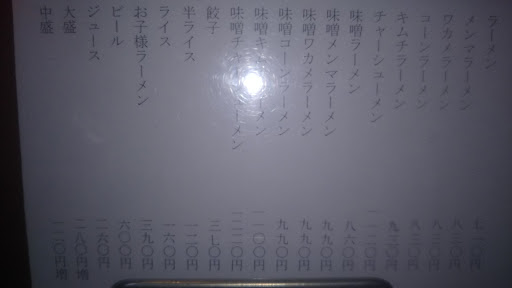 ラーメン
メンマラーメン 八三〇円
ワカメラーメン 八三〇円
コーンラーメン 八三〇円
キムチラーメン 九三〇円
チャーシューメン
味噌ラーメン 八六〇円
味噌メンマラーメン 九九〇円
味噌ワカメラーメン 九九〇円
味噌コーンラーメン 九九〇円
味噌キムチラーメン 一一〇〇円
味噌チャーシューメン
餃子 三七〇円
半ライス
ライス 一六〇円
お子様ラーメン 三九〇円
ビール 六〇〇円
ジュース 二六〇円
大盛 二八〇円増
中盛 一一〇円増